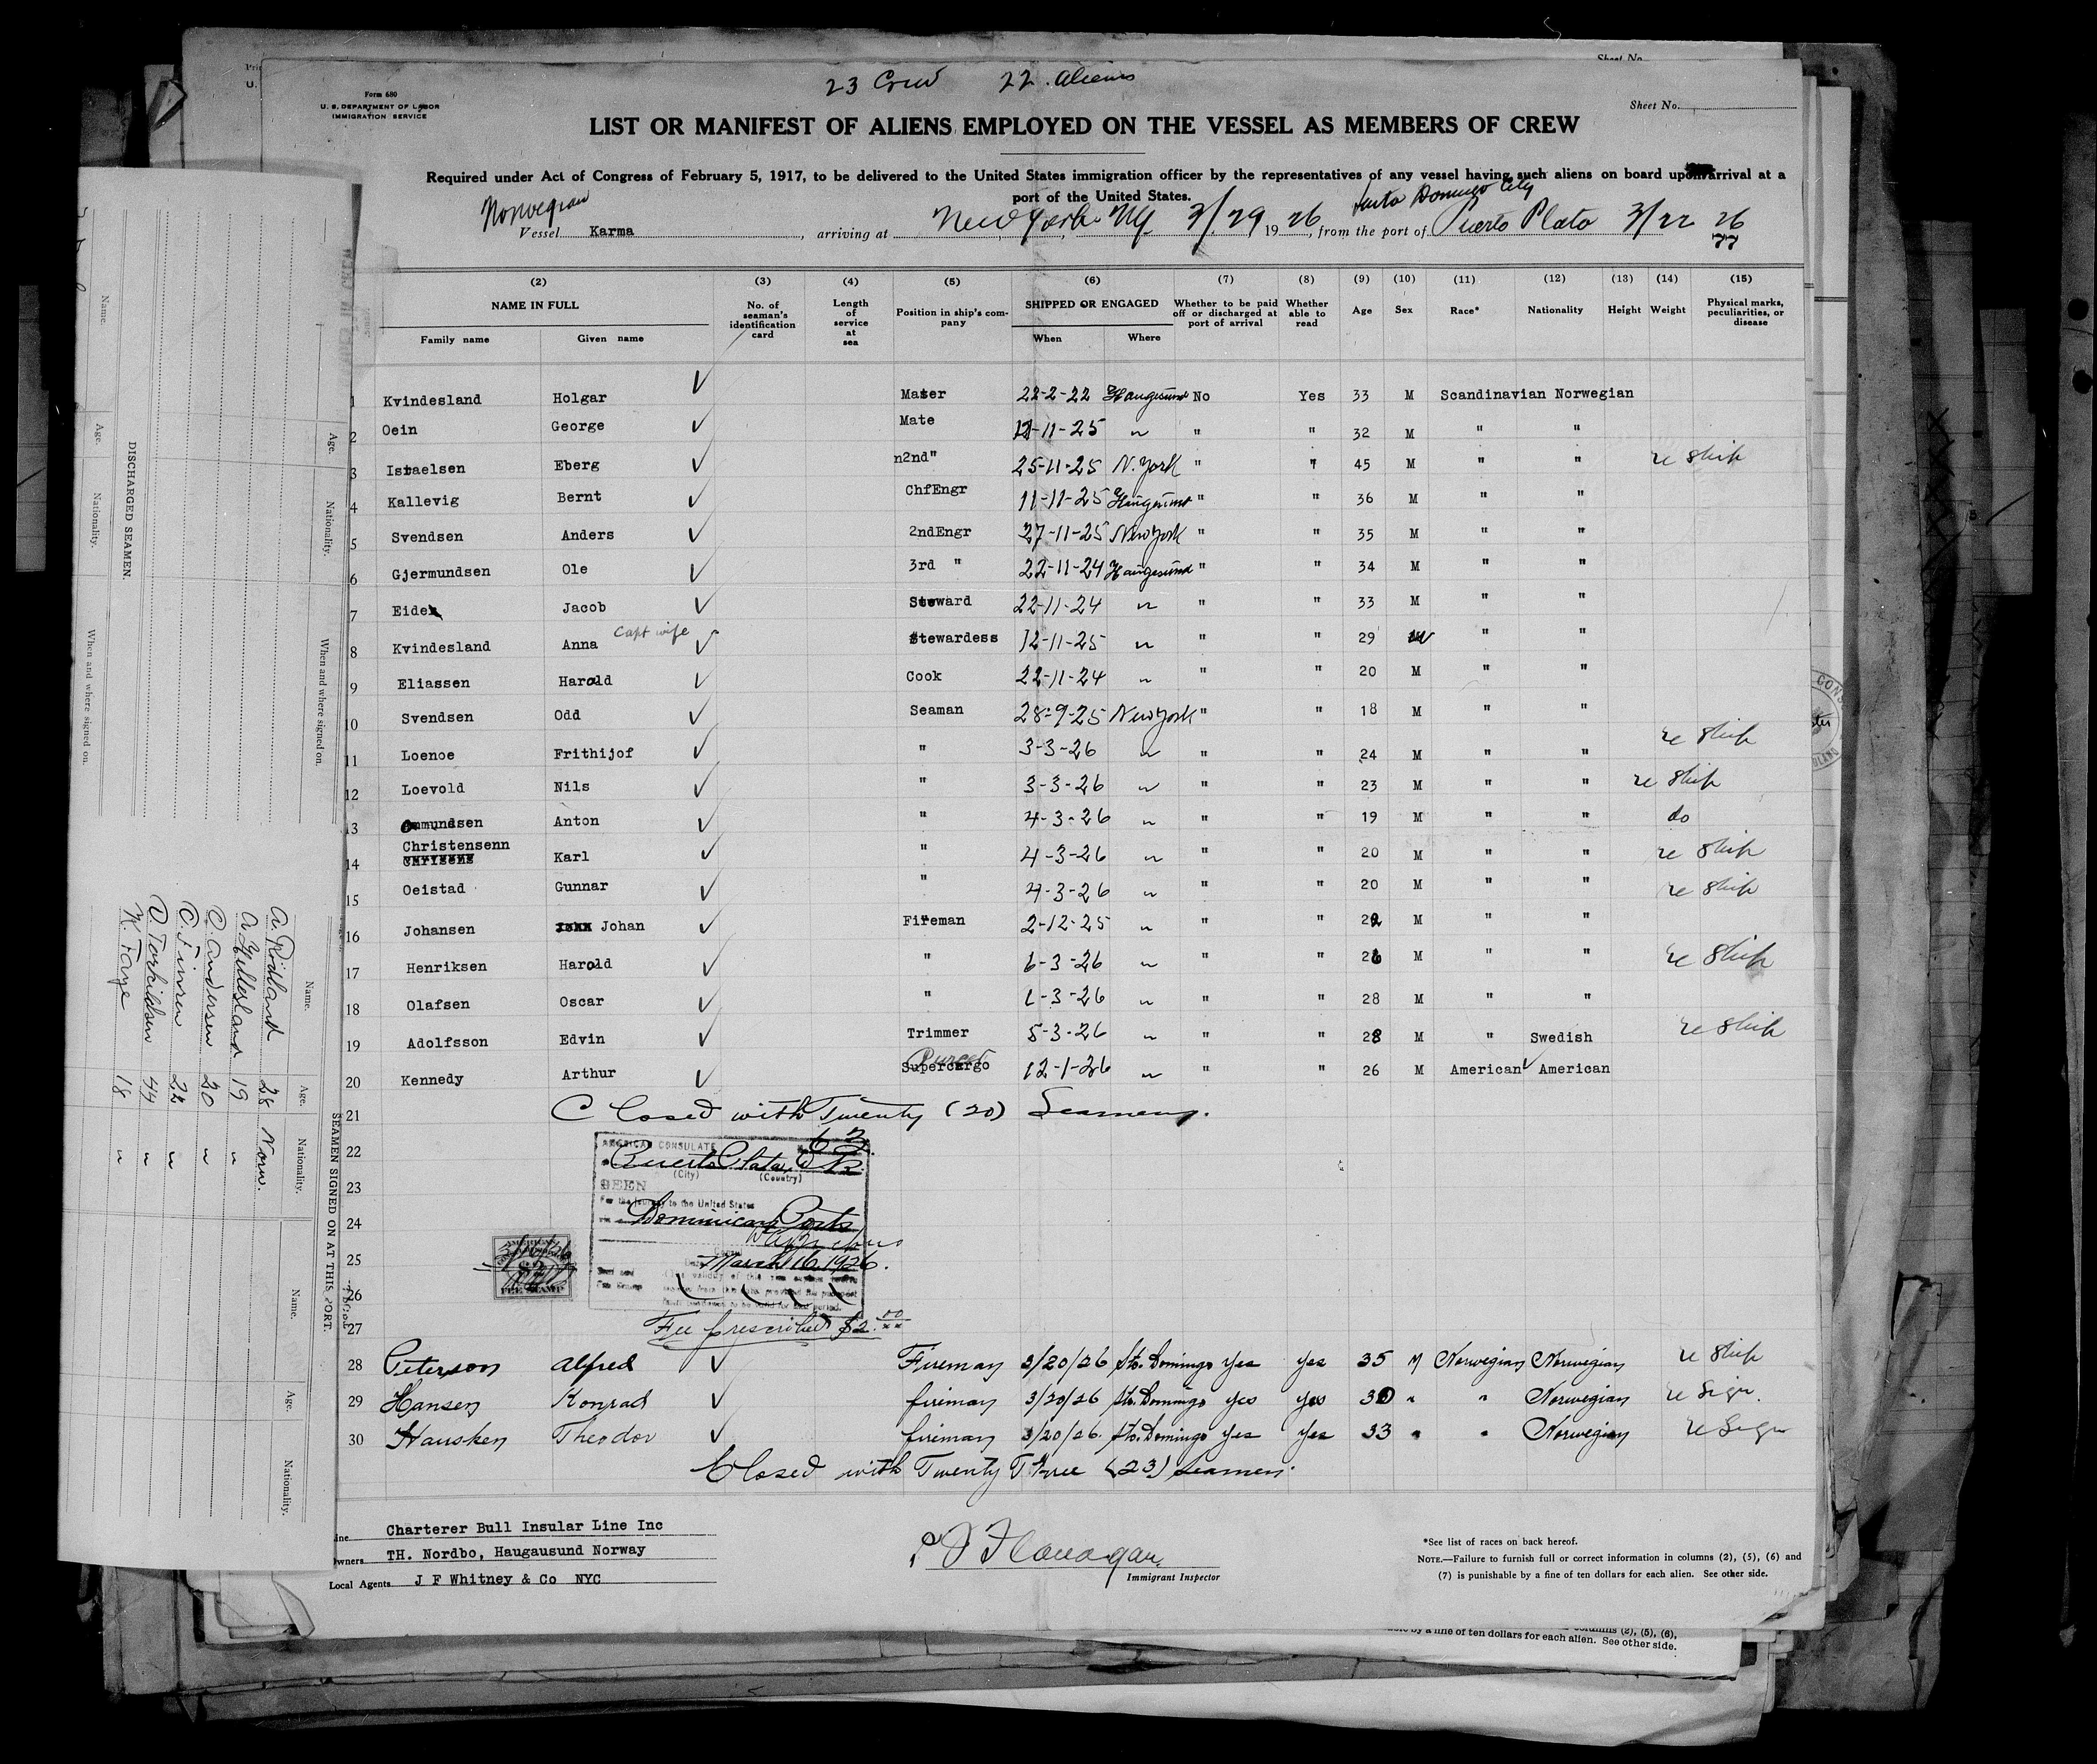 23 Crew 22 Aliens
Sheet No.
Form 680
U. S. DEPARTMENT OF LABOR
IMMIGRATION SERVICE
Sheet No.
LIST OR MANIFEST OF ALIENS EMPLOYED ON THE VESSEL AS MEMBERS OF CREW
Required under Act of Congress of February 5, 1917, to be delivered to the United States immigration officer by the representatives of any vessel having such aliens on board upon arrival at a
port of the United States.
Norwegian
Santo Domingo City
Vessel Karma, arriving at New York NY 3/29 1926, from the port of Puerto Plata 3/22 26
(2) (3) (4) (5) (6) (7) (8) (9) (10) (11) (12) (13) (14) (15)
NAME IN FULL No. of seaman's identification card Length of service at sea Position in ship's company SHIPPED OR ENGAGED Whether to be paid off or discharged at port of arrival Whether able to read Age Sex Race* Nationality Height Weight Physical marks, peculiarities, or disease
Family name Given name When Where
1 Kvindesland Holgar ✓ Master 22-2-22 Haugesund No Yes 33 M Scandinavian Norwegian
2 Oein George ✓ Mate 11-25 " " " 32 M " "
3 Israelsen Eberg ✓ 2nd" 25-11-25 N. York " " 45 M " " re ship
4 Kallevig Bernt ✓ ChfEngr 11-11-25 Haugesund " " 36 M " "
5 Svendsen Anders ✓ 2ndEngr 27-11-25 New York " " 35 M " "
6 Gjermundsen Ole ✓ 3rd " 22-11-24 Haugesund " " 34 M " "
7 Eide Jacob ✓ Steward 22-11-24 " " " 33 M " "
8 Kvindesland Anna Capt wife ✓ Stewardess 12-11-25 " " " 29 W " "
9 Eliassen Harald ✓ Cook 22-11-24 " " " 20 M " "
10 Svendsen Odd ✓ Seaman 28-9-25 New York " " 18 M " "
11 Loenoe Frithijof ✓ " 3-3-26 " " " 24 M " " re ship
12 Loevold Nils ✓ " 3-3-26 " " " 23 M " " re ship
13 Ommundsen Anton ✓ " 4-3-26 " " " 19 M " " do
14 Christensenn Karl ✓ " 4-3-26 " " " 20 M " " re ship
15 Oeistad Gunnar ✓ " 4-3-26 " " " 20 M " " re ship
16 Johansen Johan ✓ Fireman 2-12-25 " " " 22 M " "
17 Henriksen Harald ✓ " 6-3-26 " " " 26 M " " re ship
18 Olafsen Oscar ✓ " 1-3-26 " " " 28 M " "
19 Adolfsson Edvin ✓ Trimmer 5-3-26 " " " 28 M " Swedish re ship
Purser
20 Kennedy Arthur ✓ Supercargo 12-1-26 " " " 26 M American ✓ American
21 Closed with Twenty (20) Seamen.
22
23
24
25
26
27
AMERICAN CONSULATE
Puerto Plata, D R
(City) (Country)
SEEN
For the journey to the United States
via Dominican Ports
March 16, 1926.
3/16/26
AMERICAN
FEE STAMP
Fee prescribed $2.00
28 Peterson Alfred ✓ Fireman 3/20/26 Sto. Domingo Yes Yes 35 M Norwegian Norwegian re ship
29 Hansen Konrad ✓ fireman 3/20/26 Sto. Domingo Yes Yes 30 " " Norwegian re Sign.
30 Hausken Theodor ✓ fireman 3/20/26. Sto. Domingo Yes Yes 33 " " Norwegian re Sign
Closed with Twenty Three (23) seamen.
Line Charterer Bull Insular Line Inc
Owners TH. Nordbo, Haugausund Norway
Local Agents J F Whitney & Co NYC
Flanagan
Immigrant Inspector
*See list of races on back hereof.
NOTE.—Failure to furnish full or correct information in columns (2), (5), (6) and
(7) is punishable by a fine of ten dollars for each alien. See other side.
columns (2), (5), (6),
by a fine of ten dollars for each alien. See other side.
DISCHARGED SEAMEN.
Name. Age. Nationality. When and where signed on.
Age. Nationality. When and where signed on.
SEAMEN SIGNED ON AT THIS PORT.
Name. Age. Nationality. Name. Age. Nationality.
A. Rödland 28 Norw.
A. Gjellesland 19 "
O. Andersen 20 "
C. Finnen 22 "
O. Torkildsen 44 "
K. Faye 18 "